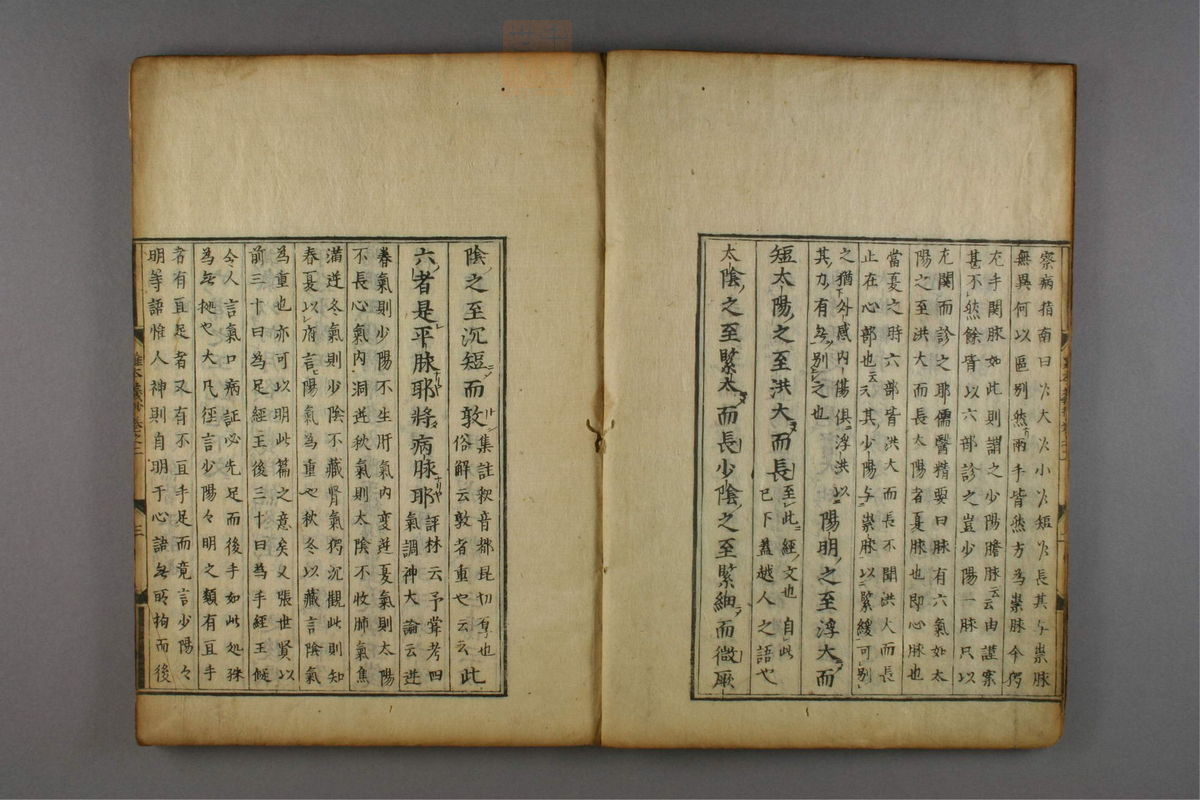 察病指南曰乍大乍小乍短乍長其与祟脉
無異何以區别然兩手皆然方為祟脉今犳
左手関脉如此則謂之少陽膽脉云云由謹案
甚不然餘皆以六部診之豈少陽一脉只以
左関而診之耶儒醫精要曰脉有六氣如太
陽之至洪大而長太陽者夏脉也即心脉也
當夏之時六部皆洪大而長不聞洪大而長
止在心部也云云其少陽与祟脉以緊緩可別
之猶外感内傷俱浮洪以
其力有無別之也
陽明之至浮大而
短太陽之至洪大而長
至此經文也 自此
已下蓋越人之語也
太陰之至緊大而長少陰之至緊細而微厥
陰之至沉短而敦
集註釈音都昆切厚也
俗解云敦者重也云云
此
六者是平脉耶將病脉耶
評林云予嘗考四
氣調神大論云逆
春氣則少陽不生肝氣内変逆夏氣則太陽
不長心氣内洞逆秋氣則太陰不收肺氣焦
満逆冬氣則少陰不藏腎氣犳沉觀此則知
春夏以府言陽氣為重也秋冬以藏言陰氣
為重也亦可以明此篇之意矣又張世賢以
前三十日為足經王後三十日為手經王候
令人言氣口病証必先足而後手如此処殊
為無拠也大凡徑言少陽々明之類有亘手
者有亘足者又有不亘手足而竟言少陽々
明等語惟人神則自明于心諸無所拘而後